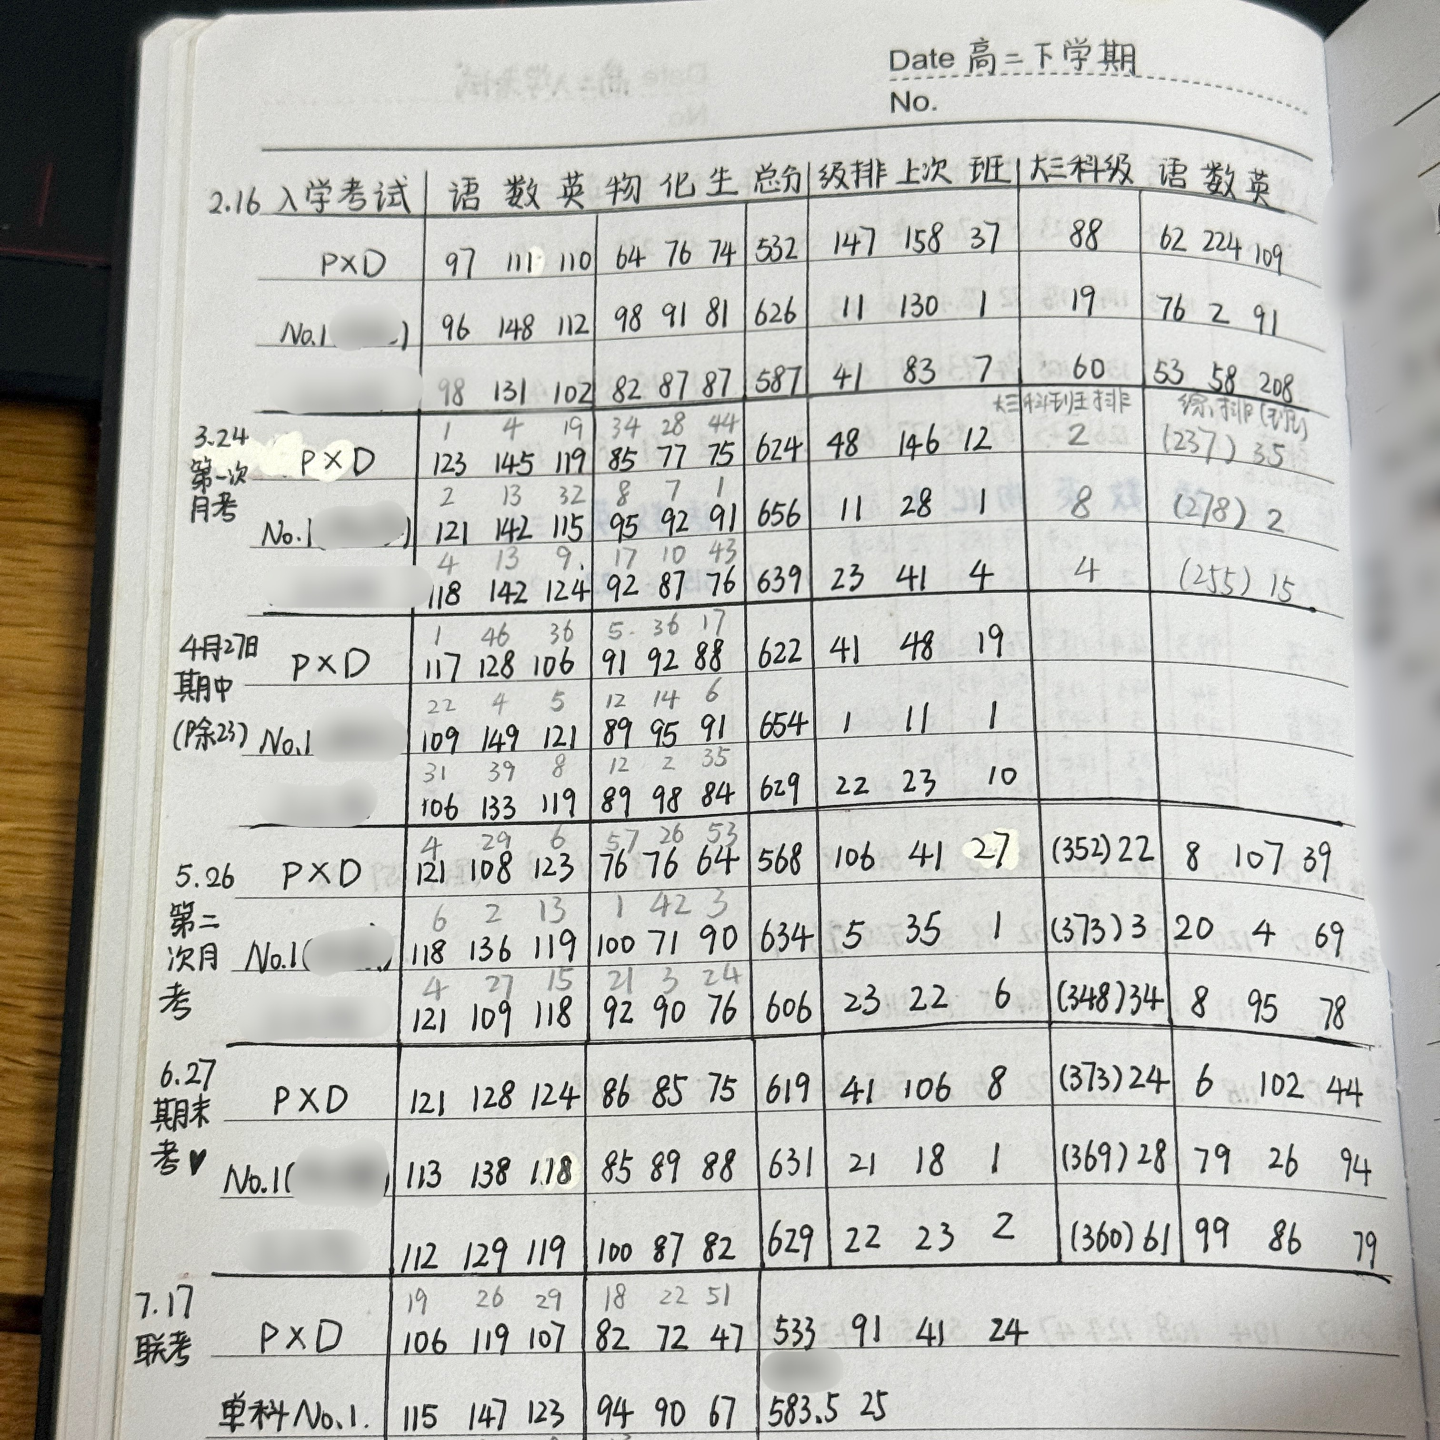 Date 高二下学期
No.
2.16 入学考试 语 数 英 物 化 生 总分 级排 上次 班 大三科级 语 数 英
PXD 97 111 110 64 76 74 532 147 158 37 88 62 224 109
No.1 ) 96 148 112 98 91 81 626 11 130 1 19 76 2 91
98 131 102 82 87 87 587 41 83 7 60 53 58 208
大三科班排 综排(班)
1 4 19 34 28 44
3.24 第一次月考 PXD 123 145 119 85 77 75 624 48 146 12 2 (237) 35
2 13 32 8 7 1
No.1( ) 121 142 115 95 92 91 656 11 28 1 8 (278) 2
4 13 9. 17 10 43
118 142 124 92 87 76 639 23 41 4 4 (255) 15
1 46 36 5. 36 17
4月27日 期中 (除23) PXD 117 128 106 91 92 88 622 41 48 19
22 4 5 12 14 6
No.1 109 149 121 89 95 91 654 1 11 1
31 39 8 12 2 35
106 133 119 89 98 84 629 22 23 10
4 29 6 57 26 53
5.26 第二次月考 PXD 121 108 123 76 76 64 568 106 41 27 (352) 22 8 107 39
6 2 13 1 42 3
No.1( ) 118 136 119 100 71 90 634 5 35 1 (373) 3 20 4 69
4 27 15 21 3 24
121 109 118 92 90 76 606 23 22 6 (348) 34 8 95 78
6.27 期末考♥ PXD 121 128 124 86 85 75 619 41 106 8 (373) 24 6 102 44
No.1( ) 113 138 118 85 89 88 631 21 18 1 (369) 28 79 26 94
112 129 119 100 87 82 629 22 23 2 (360) 61 99 86 79
19 26 29 18 22 51
7.17 联考 PXD 106 119 107 82 72 47 533 91 41 24
单科No.1. 115 147 123 94 90 67 583.5 25